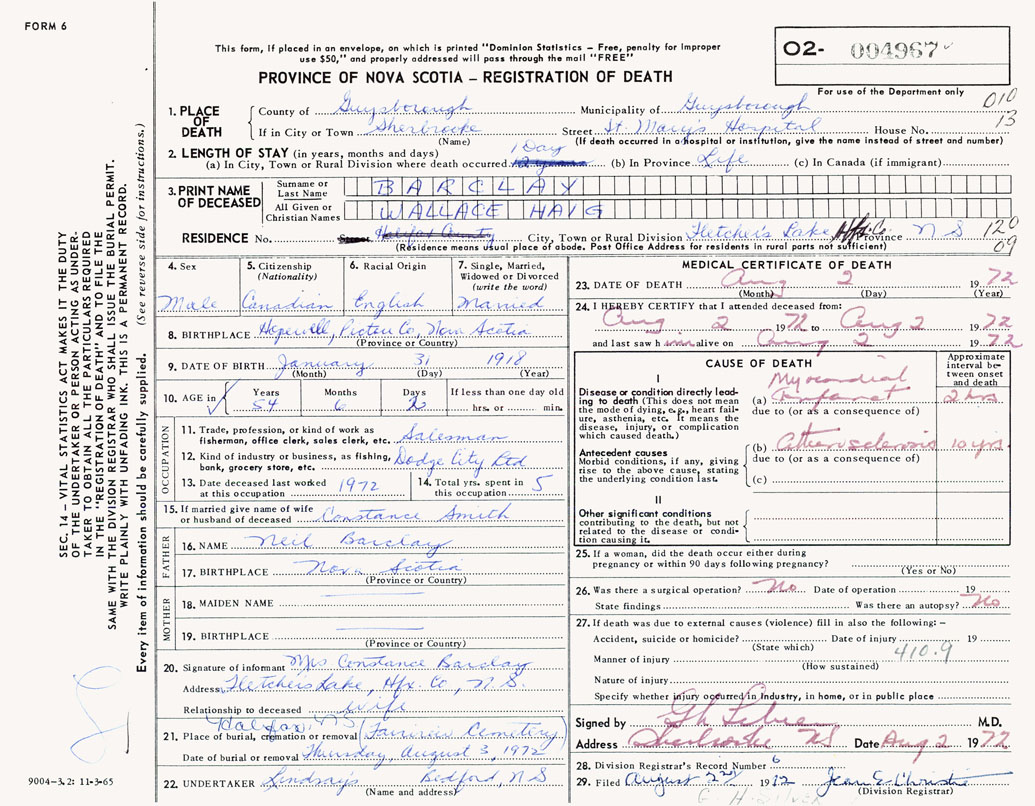 FORM 6
This form, if placed in an envelope, on which is printed "Dominion Statistics – Free, penalty for improper
use $50," and properly addressed will pass through the mail "FREE"
PROVINCE OF NOVA SCOTIA – REGISTRATION OF DEATH
O2- 004967
For use of the Department only
010
13
1. PLACE OF DEATH
County of Guysborough Municipality of Guysborough
If in City or Town Sherbrooke Street St. Mary's Hospital House No.
(Name) (If death occurred in a hospital or institution, give the name instead of street and number)
2. LENGTH OF STAY (in years, months and days) 1 Day
(a) In City, Town or Rural Division where death occurred (b) In Province Life (c) In Canada (if immigrant)
3. PRINT NAME OF DECEASED
Surname or Last Name BARCLAY
All Given or Christian Names WALLACE HAIG
RESIDENCE No. Halifax County City, Town or Rural Division Fletcher's Lake Hfx. Co. Province N S
120
09
(Residence means usual place of abode. Post Office Address for residents in rural parts not sufficient)
4. Sex
Male
5. Citizenship
(Nationality)
Canadian
6. Racial Origin
English
7. Single, Married,
Widowed or Divorced
(write the word)
Married
8. BIRTHPLACE Hopewell, Pictou Co, Nova Scotia
(Province or Country)
9. DATE OF BIRTH January 31 1918
(Month) (Day) (Year)
10. AGE in Years Months Days If less than one day old
54 6 2 hrs. or min.
OCCUPATION
11. Trade, profession, or kind of work as
fisherman, office clerk, sales clerk, etc. Salesman
12. Kind of industry or business, as fishing,
bank, grocery store, etc. Dodge City Ltd
13. Date deceased last worked
at this occupation 1972
14. Total yrs. spent in
this occupation 5
15. If married give name of wife
or husband of deceased Constance Smith
FATHER
16. NAME Neil Barclay
17. BIRTHPLACE Nova Scotia
(Province or Country)
MOTHER
18. MAIDEN NAME
19. BIRTHPLACE
(Province or Country)
20. Signature of informant Mrs Constance Barclay
Address Fletcher's Lake, Hfx. Co., N. S.
Relationship to deceased Wife
Halifax, NS
21. Place of burial, cremation or removal (Fairview Cemetery)
Date of burial or removal Thursday, August 3, 1972
22. UNDERTAKER Lindsay's Bedford, N S
(Name and address)
MEDICAL CERTIFICATE OF DEATH
23. DATE OF DEATH Aug 2 1972
(Month) (Day) (Year)
24. I HEREBY CERTIFY that I attended deceased from:
Aug 2 1972 to Aug 2 1972
and last saw him alive on Aug 2 1972
CAUSE OF DEATH
Approximate
interval between
onset
and death
I
Disease or condition directly leading
to death (This does not mean
the mode of dying, e.g., heart failure,
asthenia, etc. It means the
disease, injury, or complication
which caused death.)
Myocardial
(a) Infarct 2 hrs
due to (or as a consequence of)
Antecedent causes
Morbid conditions, if any, giving
rise to the above cause, stating
the underlying condition last.
(b) Atherosclerosis 10 yrs
due to (or as a consequence of)
(c)
II
Other significant conditions
contributing to the death, but not
related to the disease or condition
causing it.
25. If a woman, did the death occur either during
pregnancy or within 90 days following pregnancy?
(Yes or No)
26. Was there a surgical operation? No Date of operation 19
State findings Was there an autopsy? No
27. If death was due to external causes (violence) fill in also the following: –
Accident, suicide or homicide? Date of injury 19
(State which)
410.9
Manner of injury
(How sustained)
Nature of injury
Specify whether injury occurred in Industry, in home, or in public place
Signed by M.D.
Address Sherbrooke NS Date Aug 2 1972
28. Division Registrar's Record Number 6
29. Filed August 22 1972 Jean E. Christie
(Division Registrar)
SEC. 14 – VITAL STATISTICS ACT MAKES IT THE DUTY
OF THE UNDERTAKER OR PERSON ACTING AS UNDERTAKER
TO OBTAIN ALL THE PARTICULARS REQUIRED
IN THE "REGISTRATION OF DEATH" AND TO FILE THE
SAME WITH THE DIVISION REGISTRAR WHO SHALL ISSUE THE BURIAL PERMIT.
WRITE PLAINLY WITH UNFADING INK. THIS IS A PERMANENT RECORD.
Every item of information should be carefully supplied. (See reverse side for instructions.)
9004-3.2: 11-3-65